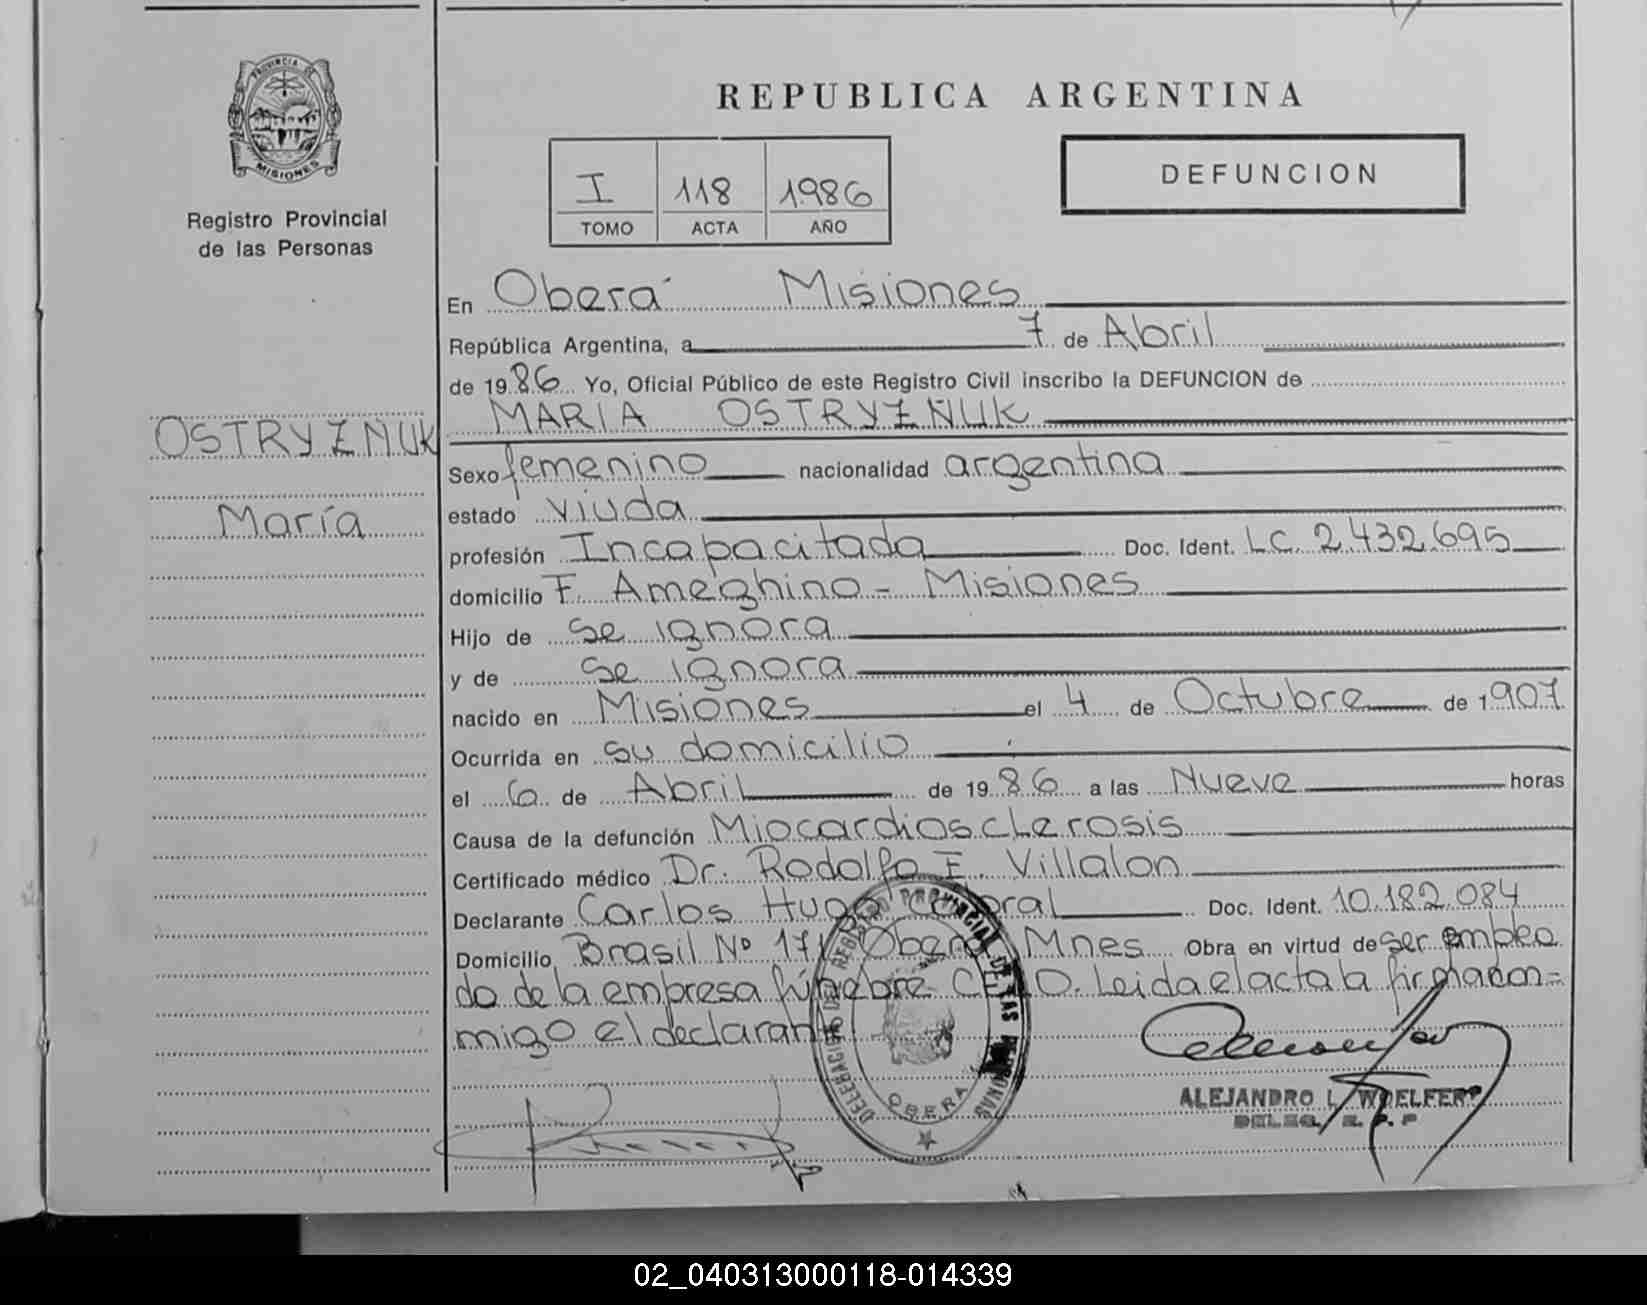 PROVINCIA DE
MISIONES
Registro Provincial
de las Personas
OSTRYZÑUK
María
REPUBLICA ARGENTINA
I 118 1986
TOMO ACTA AÑO
DEFUNCION
En Oberá Misiones
República Argentina, a 7 de Abril
de 1986 Yo, Oficial Público de este Registro Civil inscribo la DEFUNCION de
MARIA OSTRYZÑUK
Sexo femenino nacionalidad argentina
estado viuda
profesión Incapacitada Doc. Ident. L.C. 2.432.695
domicilio F. Ameghino - Misiones
Hijo de se ignora
y de se ignora
nacido en Misiones el 4 de Octubre de 1907
Ocurrida en su domicilio
el 6 de Abril de 1986 a las Nueve horas
Causa de la defunción Miocardiosclerosis
Certificado médico Dr. Rodolfo E. Villalon
Declarante Carlos Hugo Cabral Doc. Ident. 10.182.084
Domicilio Brasil Nº Oberá Mnes Obra en virtud de ser emplea
do de la empresa fúnebre Leida el acta la firma con=
migo el declarante
DELEGACION DEL REGISTRO PROVINCIAL DE LAS PERSONAS
OBERA
ALEJANDRO L. WOELFERT
02_040313000118-014339